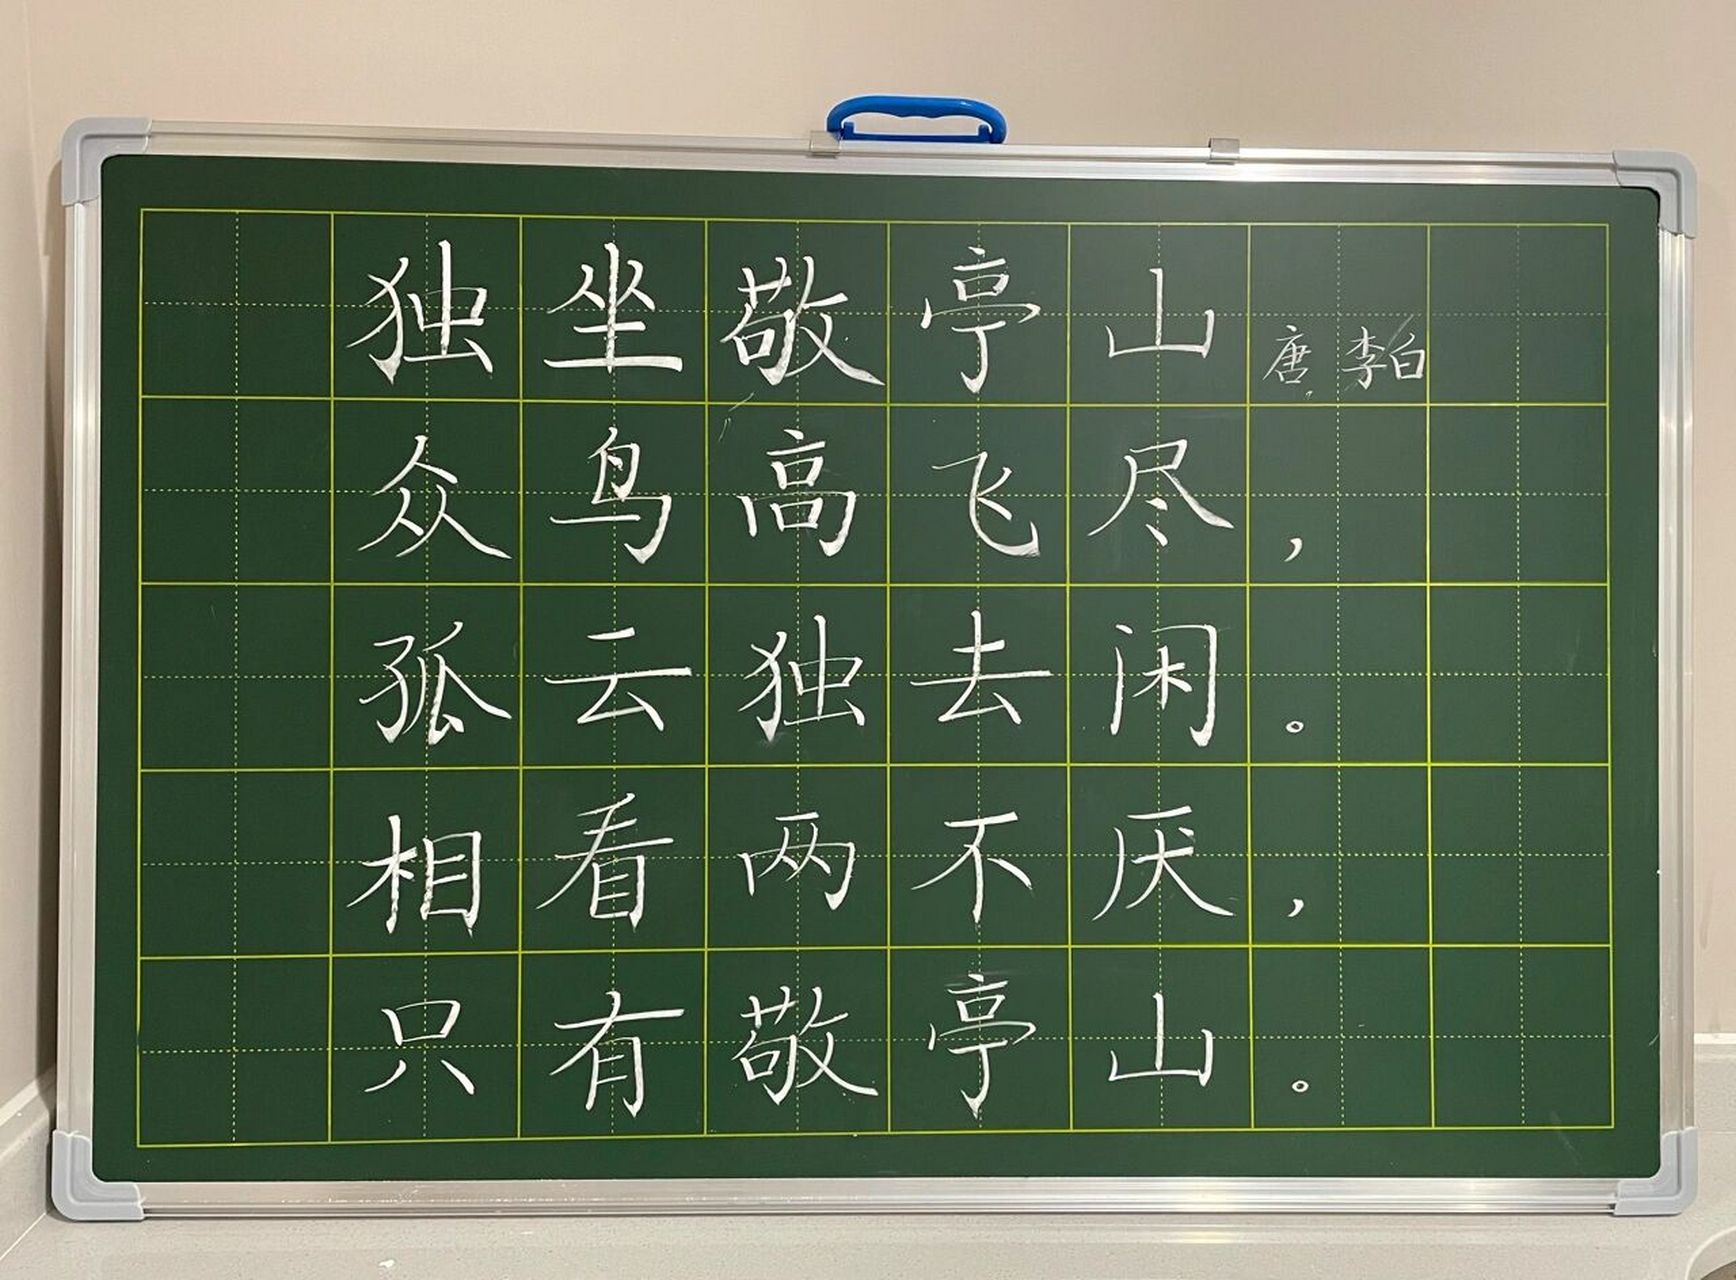 独坐敬亭山 唐 李白
众鸟高飞尽，
孤云独去闲。
相看两不厌，
只有敬亭山。